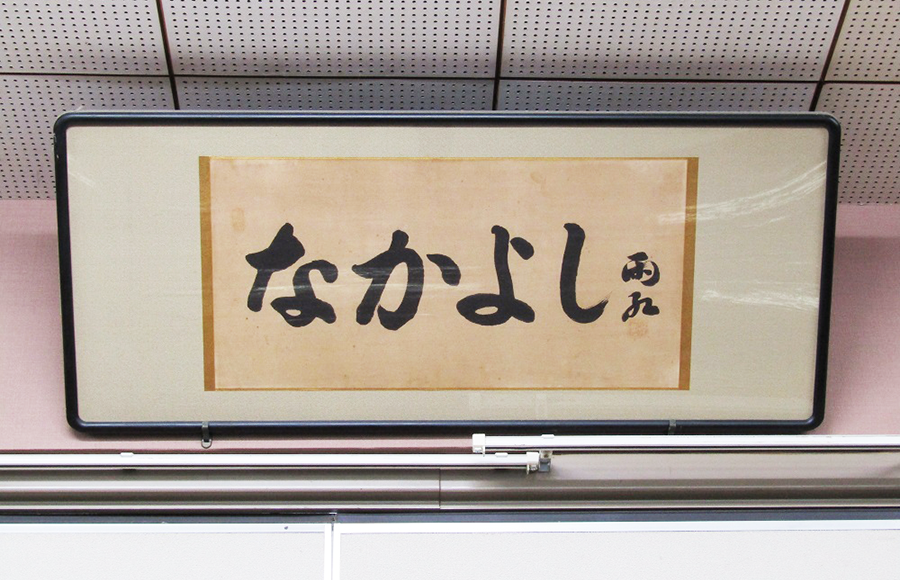 なかよし
雨紅